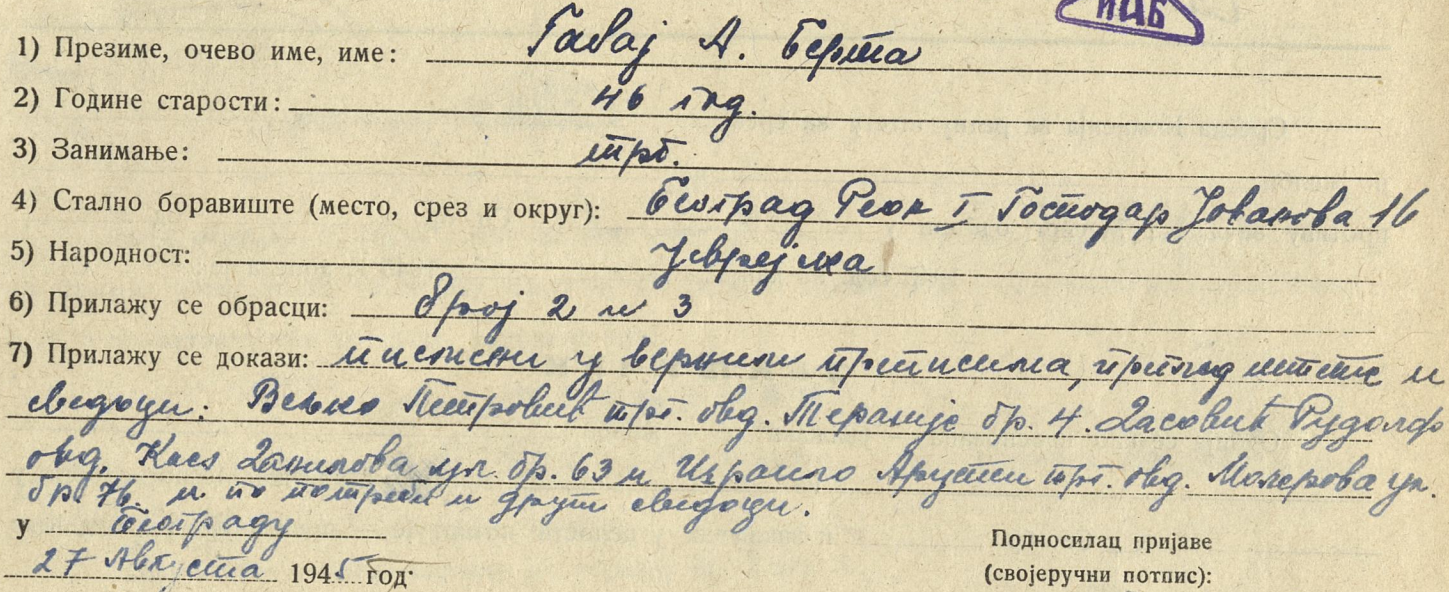 ИЦБ
1) Презиме, очево име, име: Гавај А. Берта
2) Године старости: 46 год.
3) Занимање: трг.
4) Стално боравиште (место, срез и округ): Београд Реон I Господар Јованова 16
5) Народност: Јеврејка
6) Прилажу се обрасци: број 2 и 3
7) Прилажу се докази: писмени у верним преписима, преглед штете и
сведоци: Вељко Петровић трг. овд. Теразије бр. 4. Рудолф
овд. Кнез Данилова ул. бр. 63 и Израило Аруети трг. овд. Молерова ул.
бр. 76. и по потреби и други сведоци.
у Београду
27 Августа 1945 год.
Подносилац пријаве
(својеручни потпис):